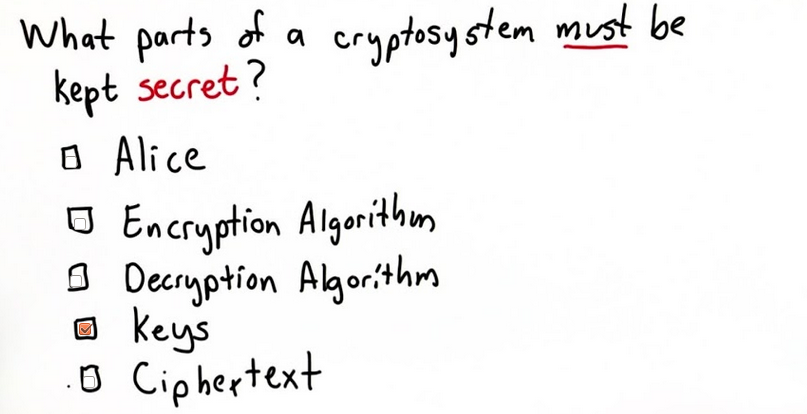 What parts of a cryptosystem must be
kept secret?
Alice
Encryption Algorithm
Decryption Algorithm
Keys
Ciphertext